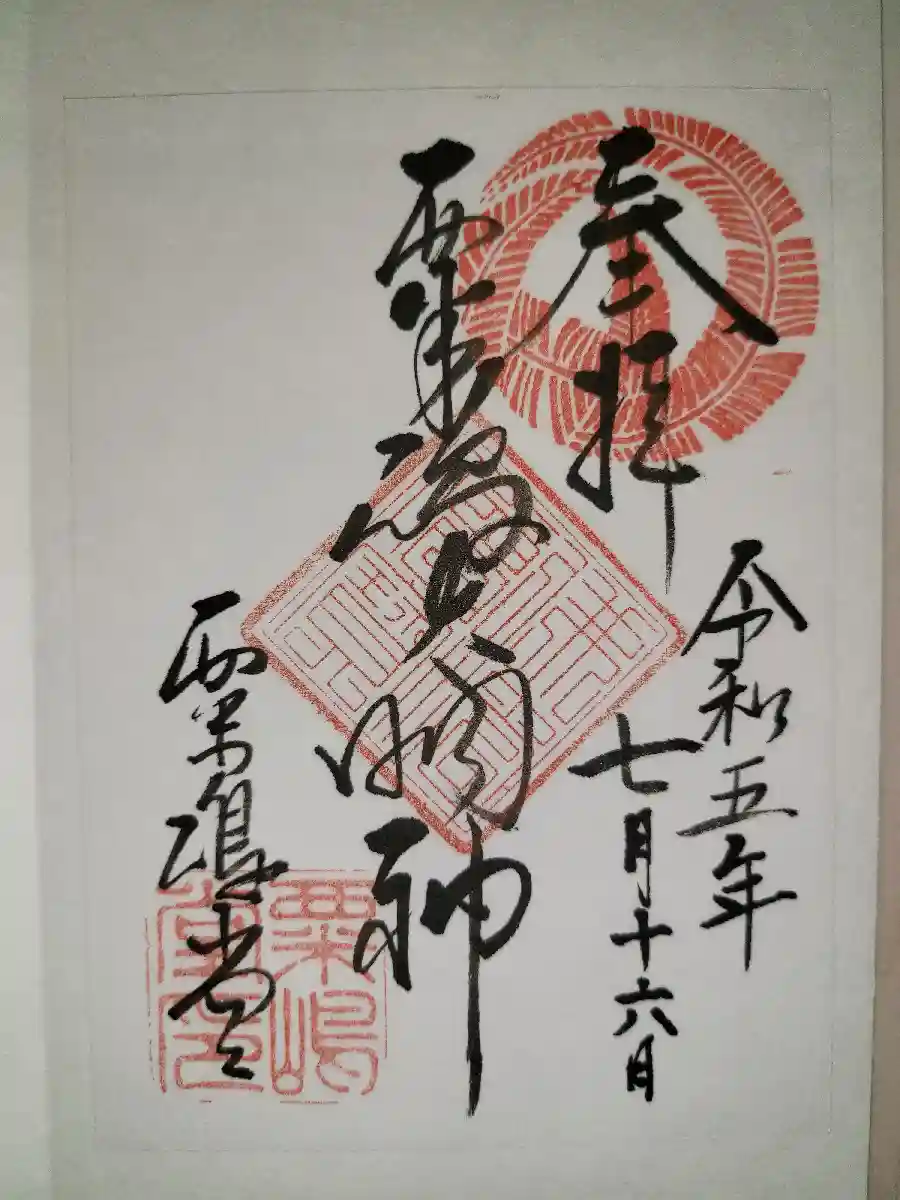 奉拝
令和五年
七月十六日
粟嶋大明神
粟嶋堂
粟嶋
堂印